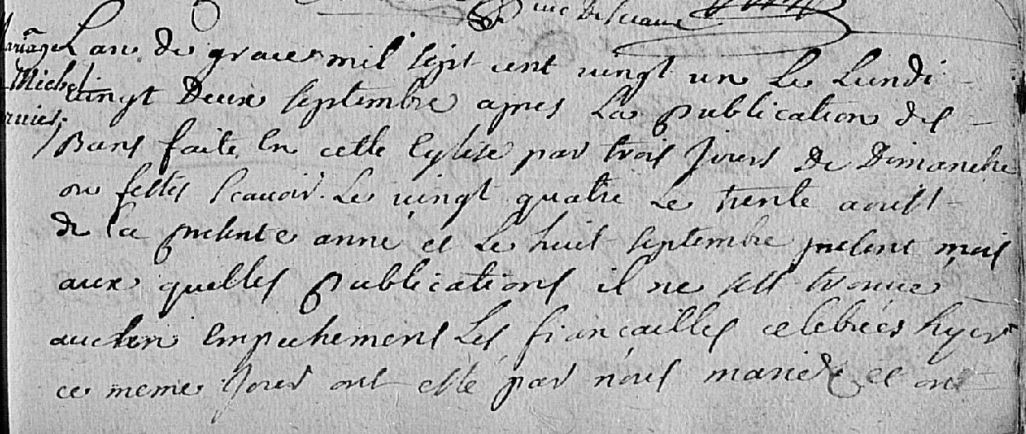 L'an de grace mil sept cent vingt un le Lundi
vingt Deux septembre apres La publication des
Bans faite En cette Eglise par trois Jours De Dimanche
ou festes scavoir Le vingt quatre Le trente aoust
de la presente anné et Le huit septembre present mois
aux quelles publications il ne sest trouvé
aucun Empechement Les fiancailles celebrées hyer
ce meme Jour ont esté par nous mariés et ont
Mariage
Michel